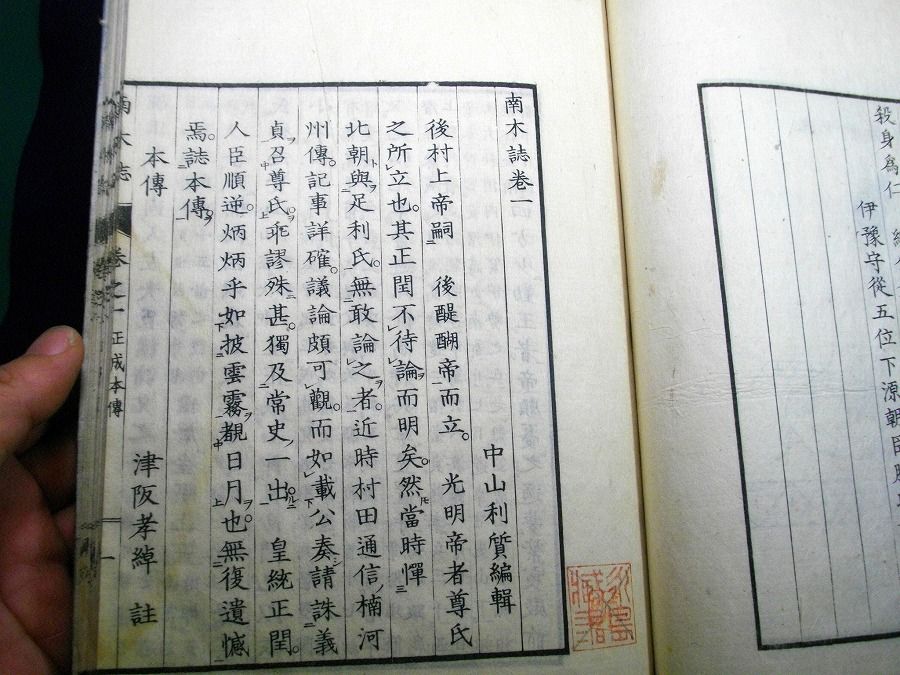 殺身爲仁
伊豫守從五位下源朝臣
南木誌卷一
中山利質編輯
後村上帝嗣　後醍醐帝而立。光明帝者尊氏
之所立也。其正閏不待論而明矣。然當時憚
北朝與足利氏。無敢論之者。近時村田通信楠河
州傳。記事詳確。議論頗可觀。而如載公奏請誅義
貞召尊氏。乖謬殊甚。獨及常史一出。　皇統正閏。
人臣順逆。炳炳乎如披雲霧覩日月也。無復遺憾
焉。誌本傳。
本傳　津阪孝綽　註
南木誌　卷之一　正成本傳　一